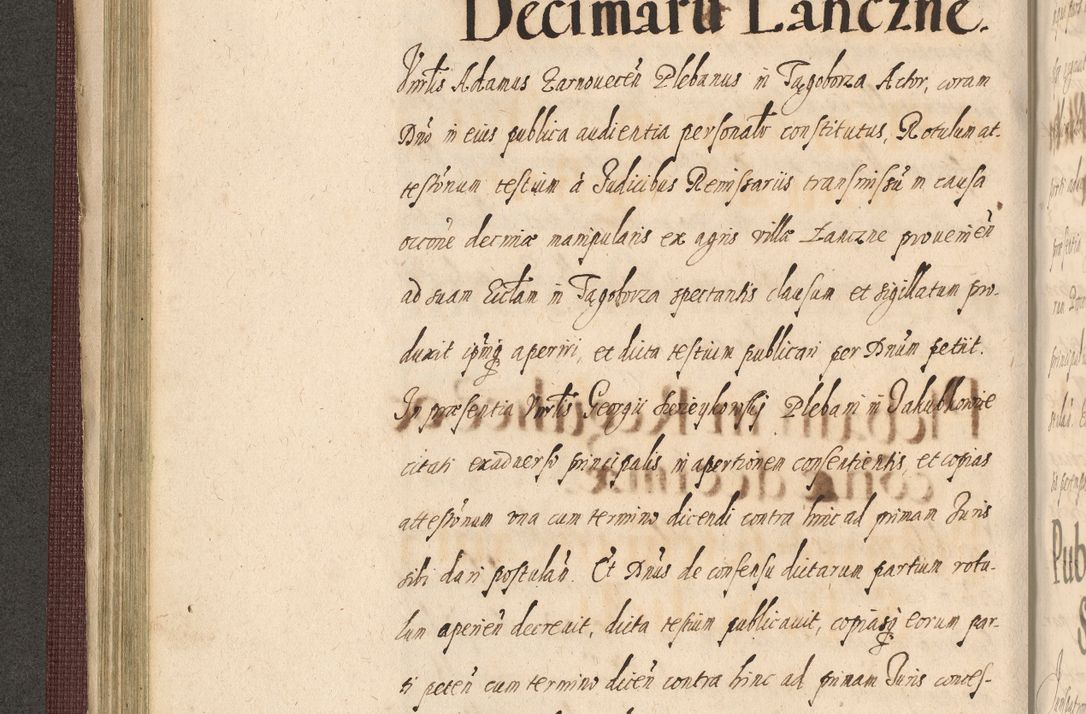 Decimarū Lanczne.
Vnrlis Adamus Zarnouecen̄ Plebanus in Tągoborza Actor, coram
Dnō in eius publica audientia personalr̄ constitutus, Rotulum at-
tesōnum testium à Judicibus Remissariis transmissū in causa
occōne decimæ manipularis ex agris villæ Lanczne prouenien̄
ad suam Ecclam in Tągoborza spectantis clausum et sigillatum pro-
duxit ipmq aperiri, et dicta testium publicari per Dnūm petiit.
In præsentia Vnrlis Georgii Plebani in Jakubkowice
citati exaduerso principalis in apertionem consentientis, et copias
attesōnum una cum termino dicendi contra hinc ad primam Juris
sibi dari postulan̄. Et Dnūs de consensu dictarum partium rotu-
lum aperien̄ decreuit, dicta testium publicauit, copiasq eorum par-
ti peten̄ cum termino dicen̄ contra hinc ad primam Juris conces-